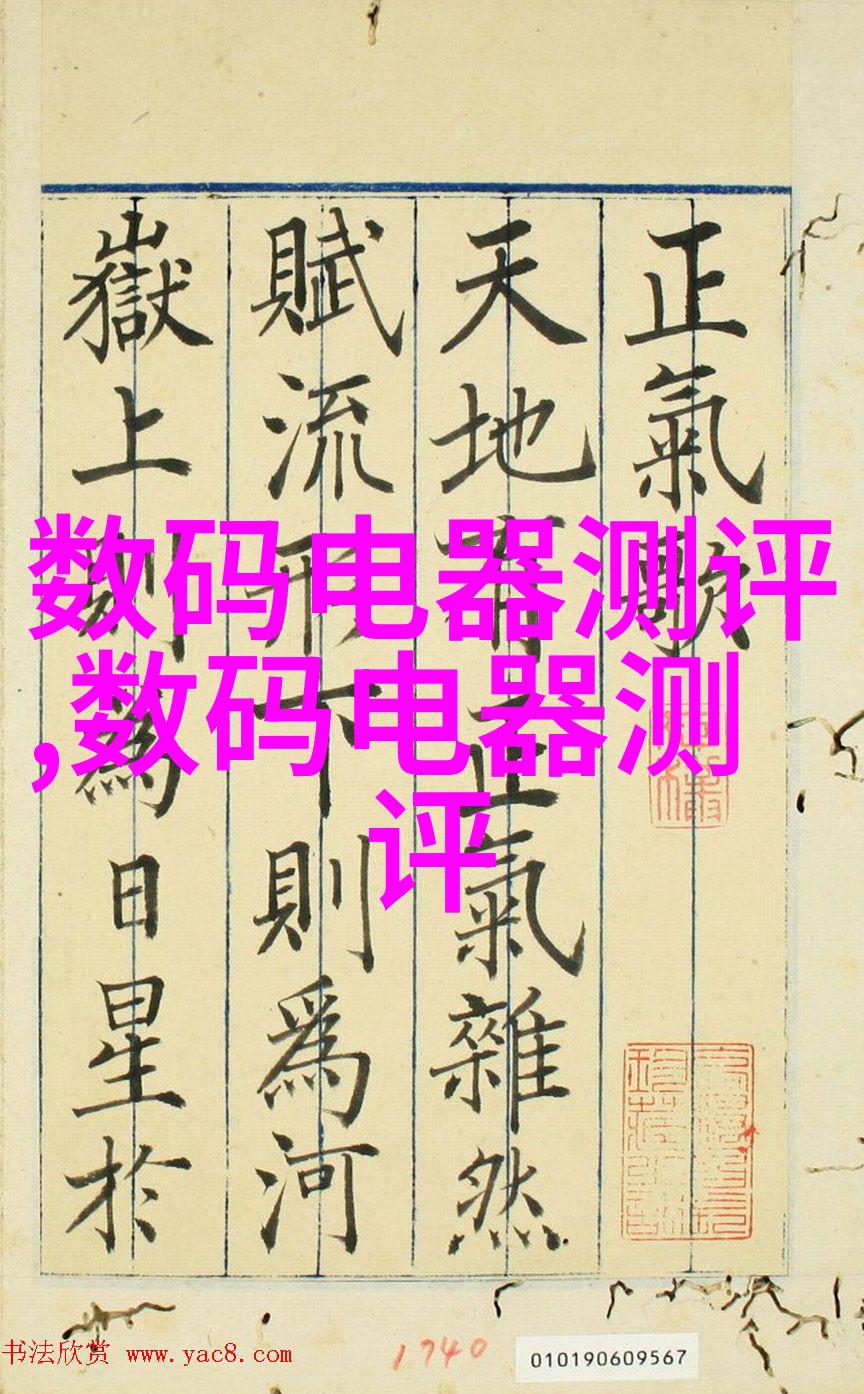 正氣歌
天地有正氣雜然
賦流形下則爲河
嶽上則爲日星於
数码电器测评
,数码电器测
评
书法欣赏 www.yac8.com
1740
010190609567